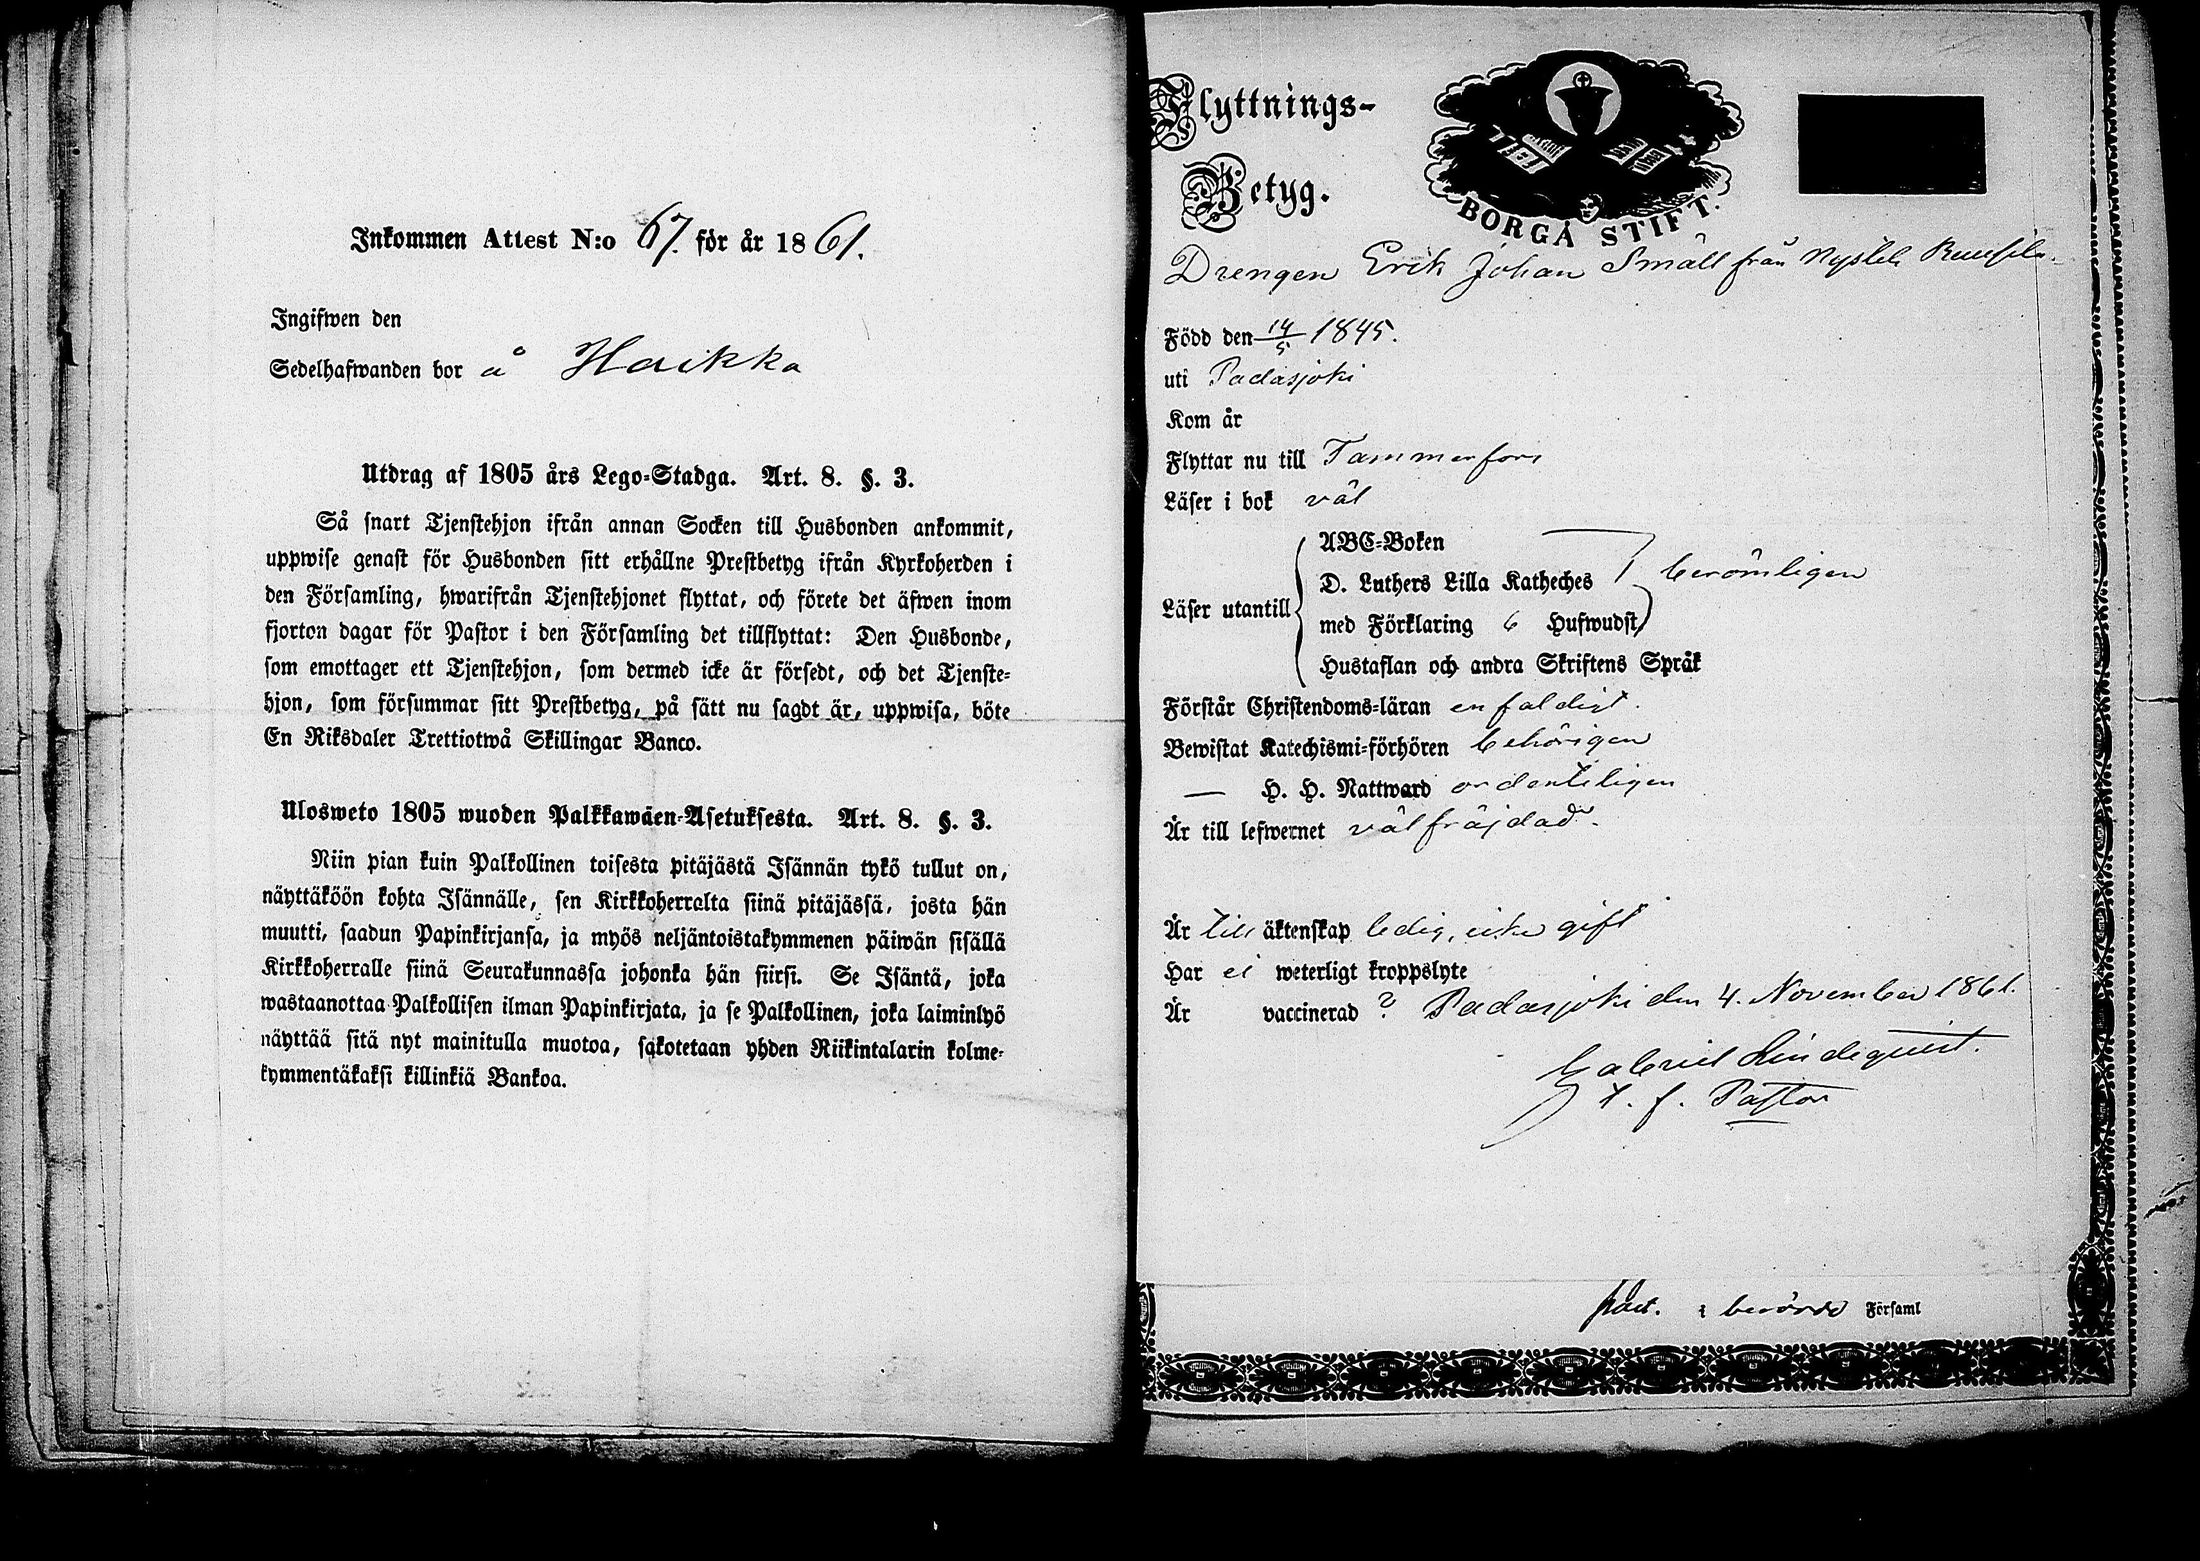 Inkommen Attest N:o 67. för år 1861.
Ingifwen den
Sedelhafwanden bor å Haikka
Utdrag af 1805 års Lego-Stadga. Art. 8. §. 3.
Så snart Tjenstehjon ifrån annan Socken till Husbonden ankommit,
uppwise genast för Husbonden sitt erhållne Prestbetyg ifrån Kyrkoherden i
den Församling, hwarifrån Tjenstehjonet flyttat, och förete det äfwen inom
fjorton dagar för Pastor i den Församling det tillflyttat: Den Husbonde,
som emottager ett Tjenstehjon, som dermed icke är försedt, och det Tjenste-
hjon, som försummar sitt Prestbetyg, på sätt nu sagdt är, uppwisa, böte
En Riksdaler Trettiotwå Skillingar Banco.
Ulosweto 1805 wuoden Palkkawäen-Asetuksesta. Art. 8. §. 3.
Niin pian kuin Palkollinen toisesta pitäjästä Isännän tykö tullut on,
näyttäköön kohta Isännälle, sen Kirkkoherralta siinä pitäjässä, josta hän
muutti, saadun Papinkirjansa, ja myös neljäntoistakymmenen päiwän sisällä
Kirkkoherralle siinä Seurakunnassa johonka hän siirsi. Se Isäntä, joka
wastaanottaa Palkollisen ilman Papinkirjata, ja se Palkollinen, joka laiminlyö
näyttää sitä nyt mainitulla muotoa, sakotetaan yhden Riikintalarin kolme-
kymmentäkaksi killinkiä Bankoa.
Flyttnings-
Betyg.
BORGÅ STIFT.
Drengen Erik Johan Småll från Nystilä
Född den 14/5 1845.
uti Padasjoki
Kom år
Flyttar nu till Tammerfors
Läser i bok väl
Läser utantill
ABC-Boken
D. Luthers Lilla Katheches berömligen
med Förklaring 6 Hufwudst
Hustaflan och andra Skriftens Språk
Förstår Christendoms-läran enfaldigt.
Bewistat Katechismi-förhören behörigen
— H. H. Nattward ordenteligen
Är till lefwernet välfräjdad.
Är till äktenskap ledig, icke gift
Har ei weterligt kroppslyte
Är vaccinerad ? Padasjoki den 4. November 1861.
Gabriel Lindequist.
t. f. Pastor
i berörde Församl